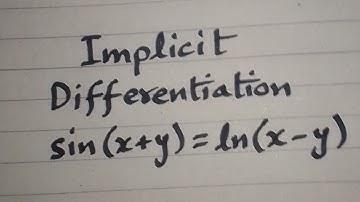 Implicit
Differentiation
sin(x+y)=ln(x-y)